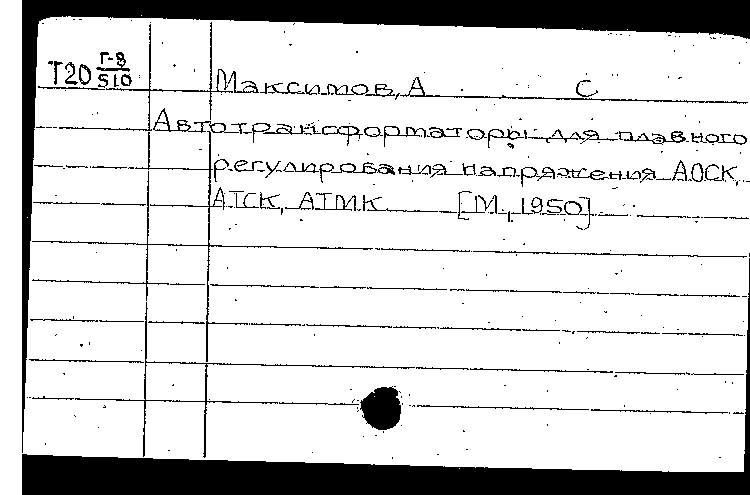 Т20 Г-8/510 Максимов, А С
Автотрансформаторы для плавного
регулирования напряжения АОСК,
АТСК, АТМК [М., 1950]